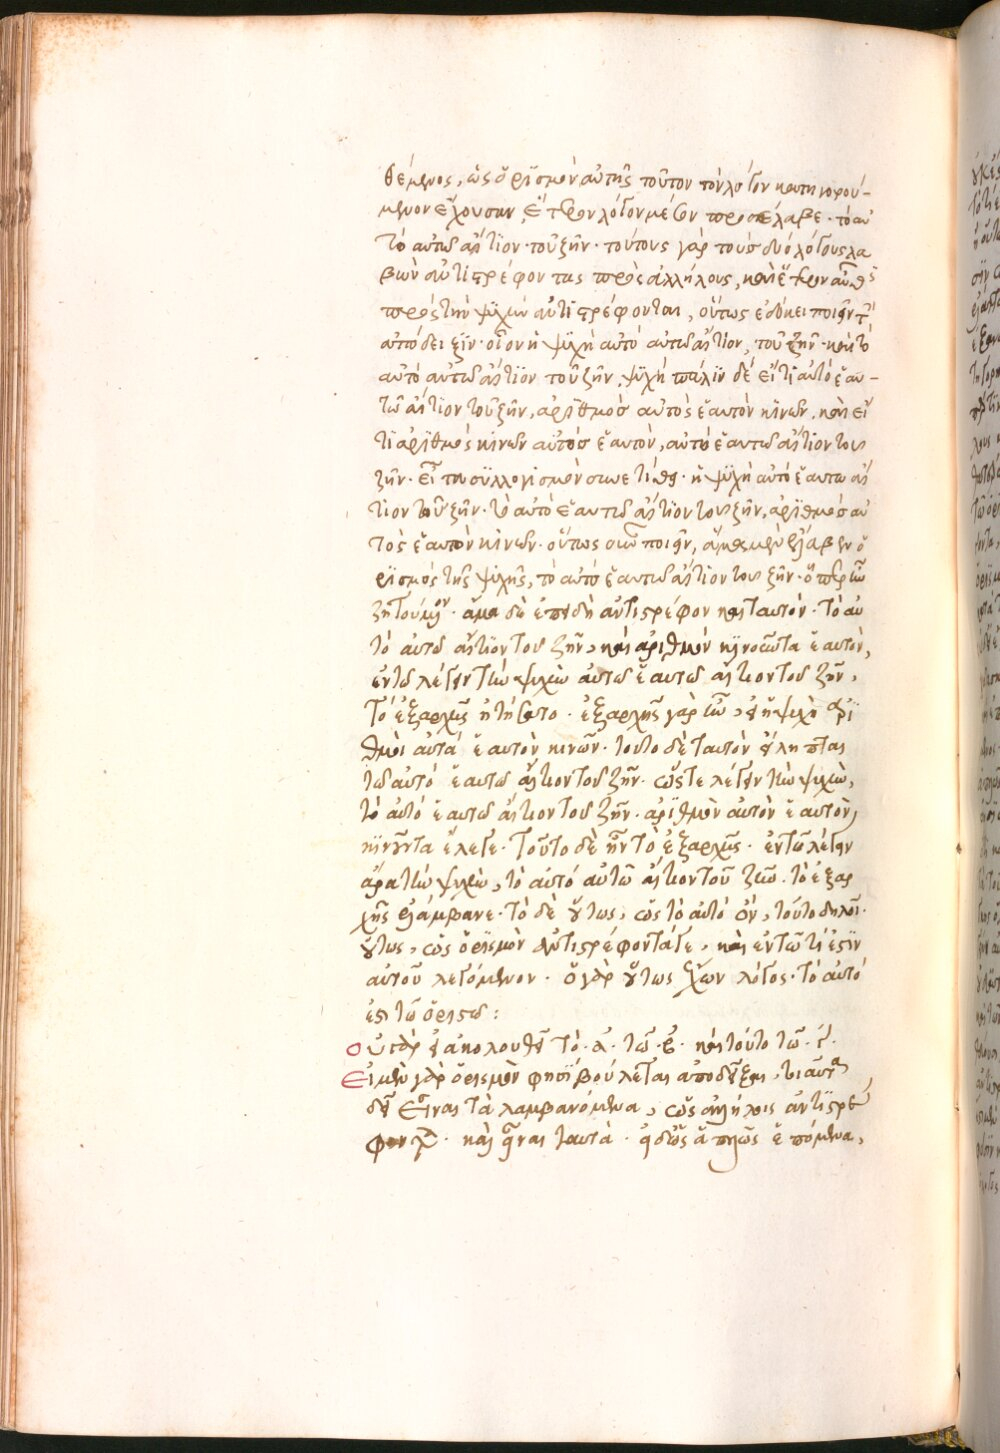 θέμενος, ὡς ὁρϊσμὸν αὐτῆς τοῦτον τὸν λόγον κατηγορού-
μενον ἔχουσαν, ἕτερον λόγον μέσον προσέλαβε · τὸ αὐ
τὸ αὐτῶ αἴτϊον · τοῦ ζῆν · τούτους γὰρ τοὺς δύο λόγους λα
βὼν ἀντιστρέφοντας πρὸς ἀλλήλους, καὶ ἕτερον αὖθις
πρὸς τὴν ψυχὴν ἀντιστρέφονται, οὕτως ἐδόκει ποιεῖν τὴν
ἀπόδειξϊν · οἷον ἡ ψυχὴ αὐτὸ αὑτῶ αἴτϊον, τοῦ ζῆν · καὶ τὸ
αὐτὸ αὑτῶ αἴτϊον τοῦ ζῆν, ψυχὴ πάλϊν δὲ εἴ τι αὐτὸ ἑαυ-
τῶ αἴτϊον τοῦ ζῆν, ἀρϊθμὸς αὐτὸς ἑαυτὸν κινῶν, καὶ εἴ
τι ἀρϊθμὸς κινῶν αὐτὸς ἑαυτὸν, αὐτὸ ἑαυτῶ αἴτιον τοῦ
ζῆν · εἶτα συλλογισμὸν συνετίθει · ἡ ψυχὴ αὐτὸ ἑαυτῶ αἴ
τιον τοῦ ζῆν · τὸ αὐτὸ ἑαυτῶ αἴτϊον τοῦ ζῆν, ἀρϊθμὸς αὐ
τὸς ἑαυτὸν κινῶν · οὕτως οὖν ποιεῖν, ἅμα μὲν ἔλαβεν ὁ
ρϊσμὸς τῆς ψυχῆς, τὸ αὐτὸ ἑαυτῶ αἴτϊον τοῦ ζῆν · ὅπερ ἦν
ζητούμενον · ἅμα δὲ ἐπειδὴ ἀντιστρέφον καὶ ταυτὸν · τὸ αὐ
τὸ αὑτῶ αἴτϊον τοῦ ζῆν, καὶ ἀριθμὸν κϊνοῦντα ἑαυτὸν,
ἐν τῶ λέγειν τὴν ψυχὴν αὐτὸ ἑαυτῶ αἴτιον τοῦ ζῆν,
τὸ ἐξαρχῆς ἠτήσατο · ἐξαρχῆς γὰρ ἦν, εἰ ἡ ψυχὴ ἀρϊ
θμὸς αὐτὸ ἑαυτὸν κινῶν · τοῦτο δὲ ταυτὸν εἴληπται
τῶ αὐτὸ ἑαυτῶ αἴτιον τοῦ ζῆν · ὥστε λέγειν τὴν ψυχὴν,
τὸ αὐτὸ ἑαυτῶ αἴτιον τοῦ ζῆν · ἀρϊθμὸν αὐτὸν ἑαυτὸν
κϊνοῦντα ἔλεγε · τοῦτο δὲ ἦν τὸ ἐξαρχῆς · ἐν τῶ λέγειν
ἄρα τὴν ψυχὴν, τὸ αὐτὸ αὑτῶ αἴτιον τοῦ ζῆν · τὸ ἐξαρ
χῆς ἐλάμβανε · τὸ δὲ οὕτως, ὡς τὸ αὐτὸ ὂν, τοῦτο δηλοῖ ·
οὕτως, ὡς ὁρϊσμὸν ἀντιστρέφοντά τε, καὶ ἐν τῶ τί ἐστϊν
αὐτοῦ λεγόμενον · ὁ γὰρ οὕτως ἔχων λόγος · τὸ αὐτό
ἐστι τῶ ὁριστῶ :
Οὐ γὰρ εἰ ἀκολουθεῖ τὸ · α · τῶ · β · καὶ τοῦτο τῶ · γ ·
Εἰ μὲν γὰρ ὁρισμὸν φησὶ βούλεται ἀποδεῖξαι, τοιαῦτα
δεῖ εἶναι τὰ λαμβανόμενα, ὡς ἀλλήλοις ἀντιστρέ
φειν · καὶ εἶναι ταυτὰ · εἰ δ' ὡς ἁπλῶς ἑπόμενα,